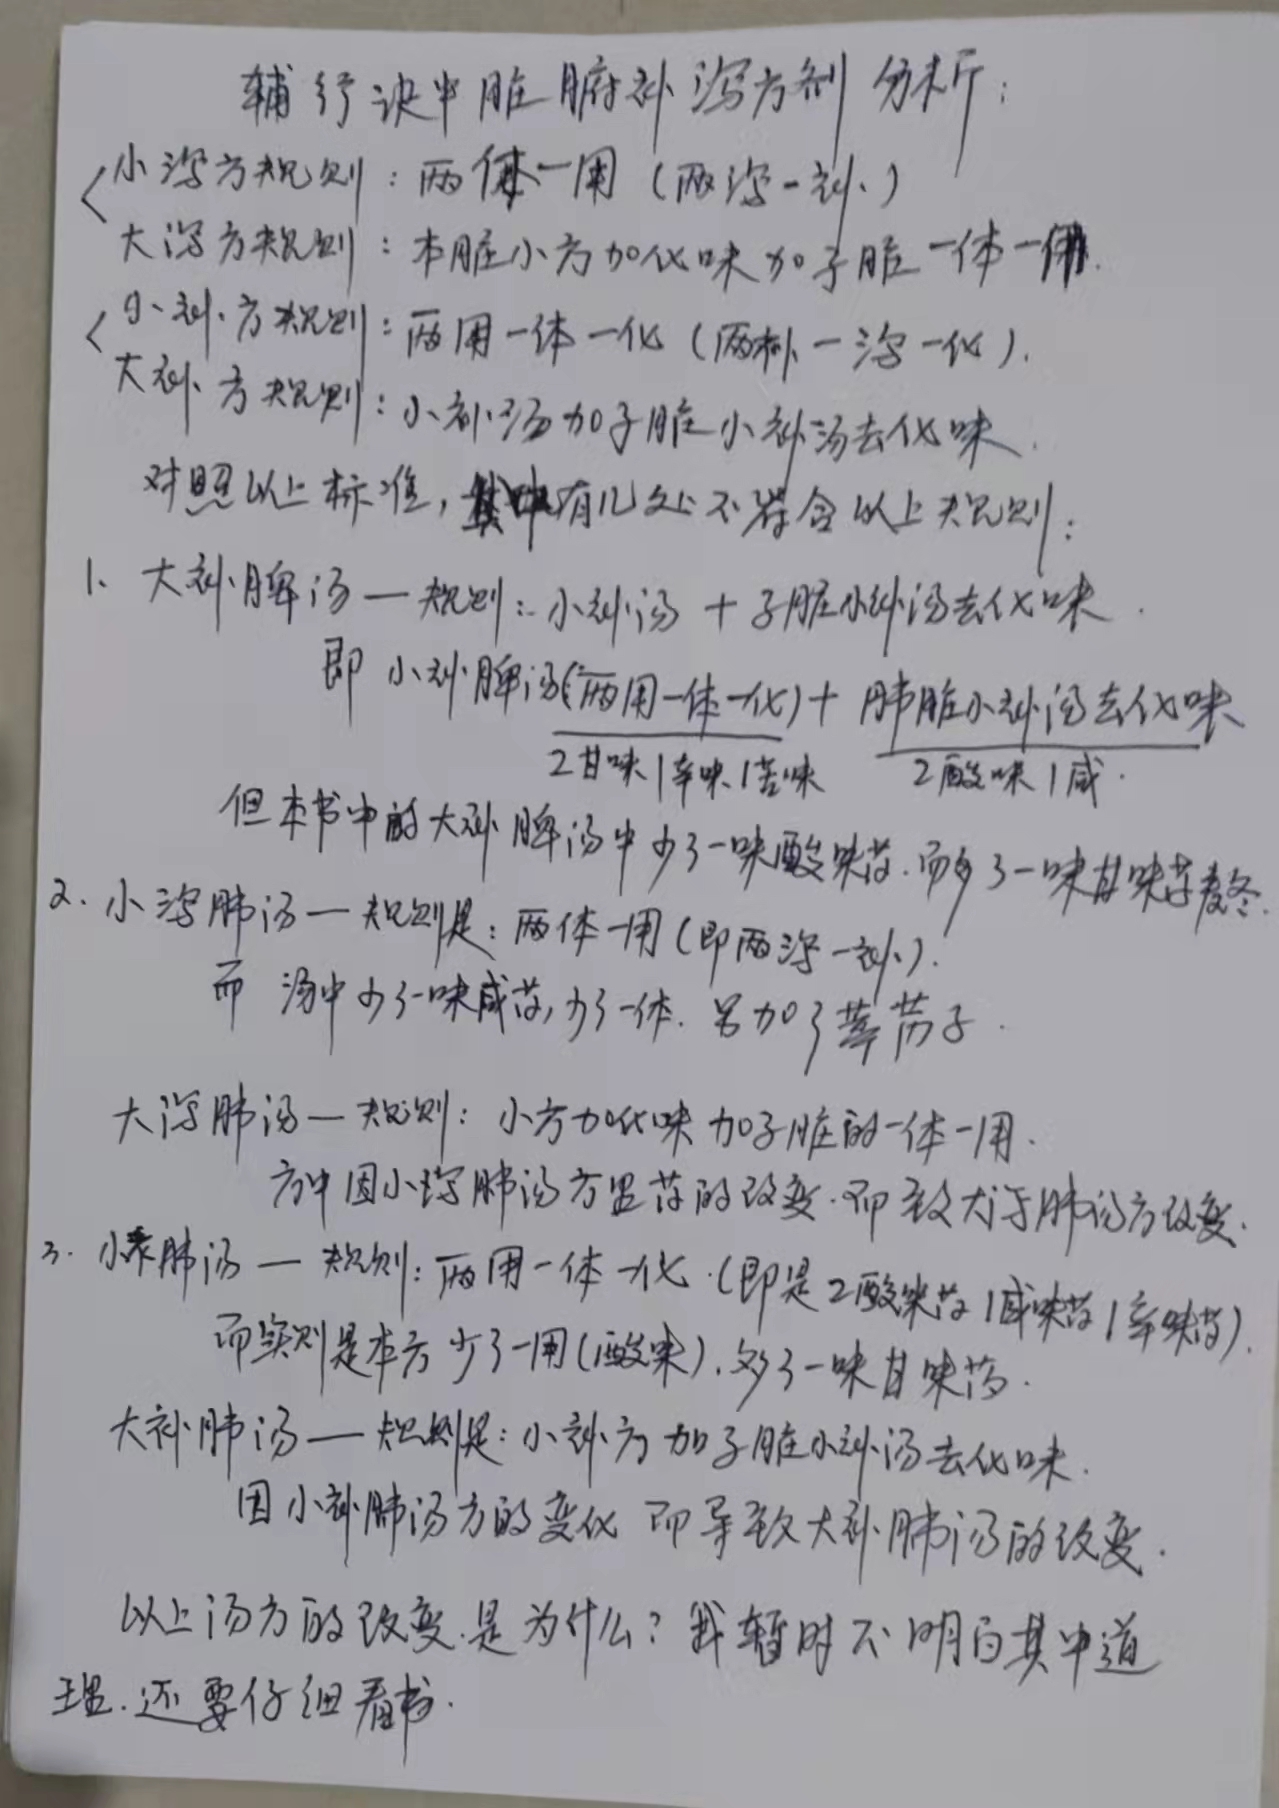 辅行诀中脏腑补泻方剂分析:
小泻方规则:两体一用(两泻一补)
大泻方规则:本脏小方加化味加子脏一体一用.
小补方规则:两用一体一化(两补一泻一化).
大补方规则:小补汤加子脏小补汤去化味.
对照以上标准,其中有几处不符合以上规则:
1. 大补脾汤—规则:小补汤+子脏小补汤去化味.
即 小补脾汤(两用一体一化)+ 肺脏小补汤去化味
2甘味1辛味1苦味 2酸味1咸.
但本书中的大补脾汤中少了一味酸味药.而多了一味甘味药麦冬.
2. 小泻肺汤—规则是:两体一用(即两泻一补).
而 汤中少了一味咸药,少了一体.另加了葶苈子.
大泻肺汤—规则:小方加化味加子脏的一体一用.
方中因小泻肺汤方里药的改变.而致大泻肺汤方改变.
3. 小补肺汤—规则:两用一体一化.(即是2酸味药1咸味药1辛味药).
而实则是本方少了一用(酸味).多了一味甘味药.
大补肺汤—规则是:小补方加子脏小补汤去化味.
因小补肺汤方的变化而导致大补肺汤的改变.
以上汤方的改变.是为什么?我暂时不明白其中道
理.还要仔细看书.